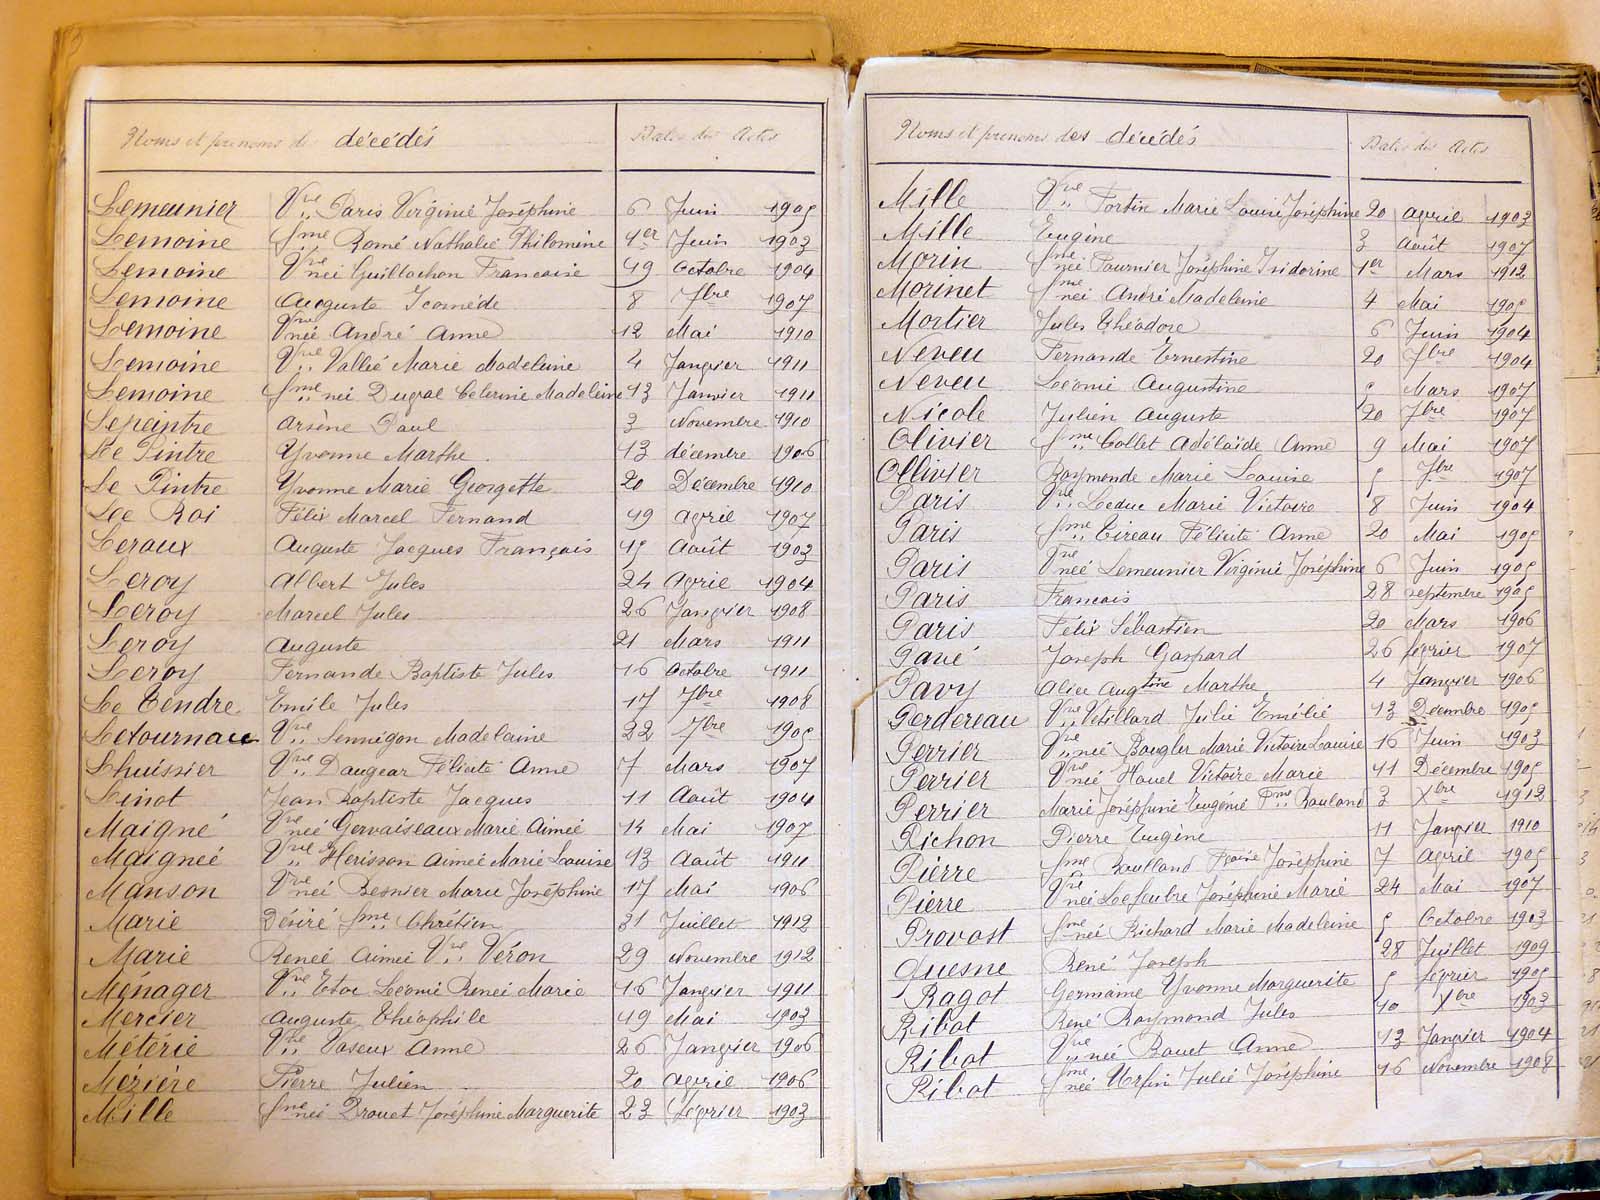 Noms et prénoms de décédés Dates des Actes
Lemeunier Vve Paris Virginie Joséphine 6 Juin 1905
Lemoine fme Romé Nathalie Philomine 1er Juin 1903
Lemoine Vve née Guillochon Francaise 19 Octobre 1904
Lemoine Auguste 8 7bre 1907
Lemoine Vve née André Anne 12 Mai 1910
Lemoine Vve Vallée Marie Madeleine 4 Janvier 1911
Lemoine fme née Duval Celerine Madeleine 13 Janvier 1911
Lepeintre Arsène Paul 3 Novembre 1910
Le Pintre Yvonne Marthe 13 décembre 1906
Le Pintre Yvonne Marie Georgette 20 Décembre 1910
Le Roi Félix Marcel Fernand 19 Avril 1907
Leroux Auguste Jacques François 15 Août 1903
Leroy Albert Jules 24 Avril 1904
Leroy Marcel Jules 26 Janvier 1908
Leroy Auguste 21 Mars 1911
Leroy Fernande Baptiste Jules 16 Octobre 1911
Le Tendre Emile Jules 17 7bre 1908
Letournau Vve Sennegon Madelaine 22 7bre 1905
Lhuissier Vve Daugear Félicité Anne 7 Mars 1907
Linot Jean Baptiste Jacques 11 Août 1904
Maigné Vve née Gervaiseaux Marie Aimée 14 Mai 1907
Maigneé Vve Herisson Aimée Marie Louise 13 Août 1911
Manson Vve née Besnier Marie Joséphine 17 Mai 1906
Marie Désiré fme Chrétien 31 Juillet 1912
Marie Renée Aimée Vve Véron 29 Novembre 1912
Ménager Vve Etoc Léonie Renée Marie 16 Janvier 1911
Mercier Auguste Théophile 19 Mai 1903
Métérie Vve Vaseux Anne 26 Janvier 1906
Mézière Pierre Julien 20 Avril 1906
Mille fme née Drouet Joséphine Marguerite 23 Février 1903
Noms et prénoms des décédés Dates des Actes
Mille Vve Fortin Marie Louise Joséphine 20 Avril 1903
Mille Eugène 3 Août 1907
Morin fme née Fournier Joséphine Isidorine 1er Mars 1912
Morinet fme née André Madeleine 4 Mai 1905
Mortier Jules Théodore 6 Juin 1904
Neveu Fernande Ernestine 20 7bre 1904
Neveu Léonie Augustine 5 Mars 1907
Nicole Julien Auguste 20 7bre 1907
Olivier fme Collet Adélaïde Anne 9 Mai 1907
Ollivier Raymonde Marie Louise 5 7bre 1907
Paris Vve Leduc Marie Victoire 8 Juin 1904
Paris fme Tireau Félicité Anne 20 Mai 1905
Paris Vve neé Lemeunier Virginie Joséphine 6 Juin 1905
Paris Francois 28 septembre 1905
Paris Félix Sébastien 20 Mars 1906
Pavé Joseph Gaspard 26 février 1907
Pavy Alice Augtine Marthe 4 Janvier 1906
Perdereau Vve Vétillard Julie Emélie 13 Décembre 1905
Perrier Vve née Marie Victoire Louise 16 Juin 1903
Perrier Vve née Houel Victoire Marie 11 Décembre 1905
Perrier Marie Joséphine Eugénie fme Rouland 3 Xbre 1912
Pichon Pierre Eugène 11 Janvier 1910
Pierre fme Roulland Joséphine 7 Avril 1905
Pierre Vve née Lefeubre Joséphine Marie 24 Mai 1907
Provost fme née Richard Marie Madeleine 5 Octobre 1903
Quesne René Joseph 28 Juillet 1909
Ragot Germaine Yvonne Marguerite 5 février 1905
Ribot René Raymond Jules 10 Xbre 1903
Ribot Vve née Bouet Anne 13 Janvier 1904
Ribot fme née Urfin Julie Joséphine 16 Novembre 1908